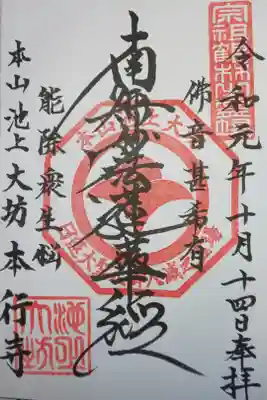 令和元年十月十四日奉拝
佛音甚希有
南無妙法蓮華經
能除衆生悩
本山池上大坊本行寺
池上大坊